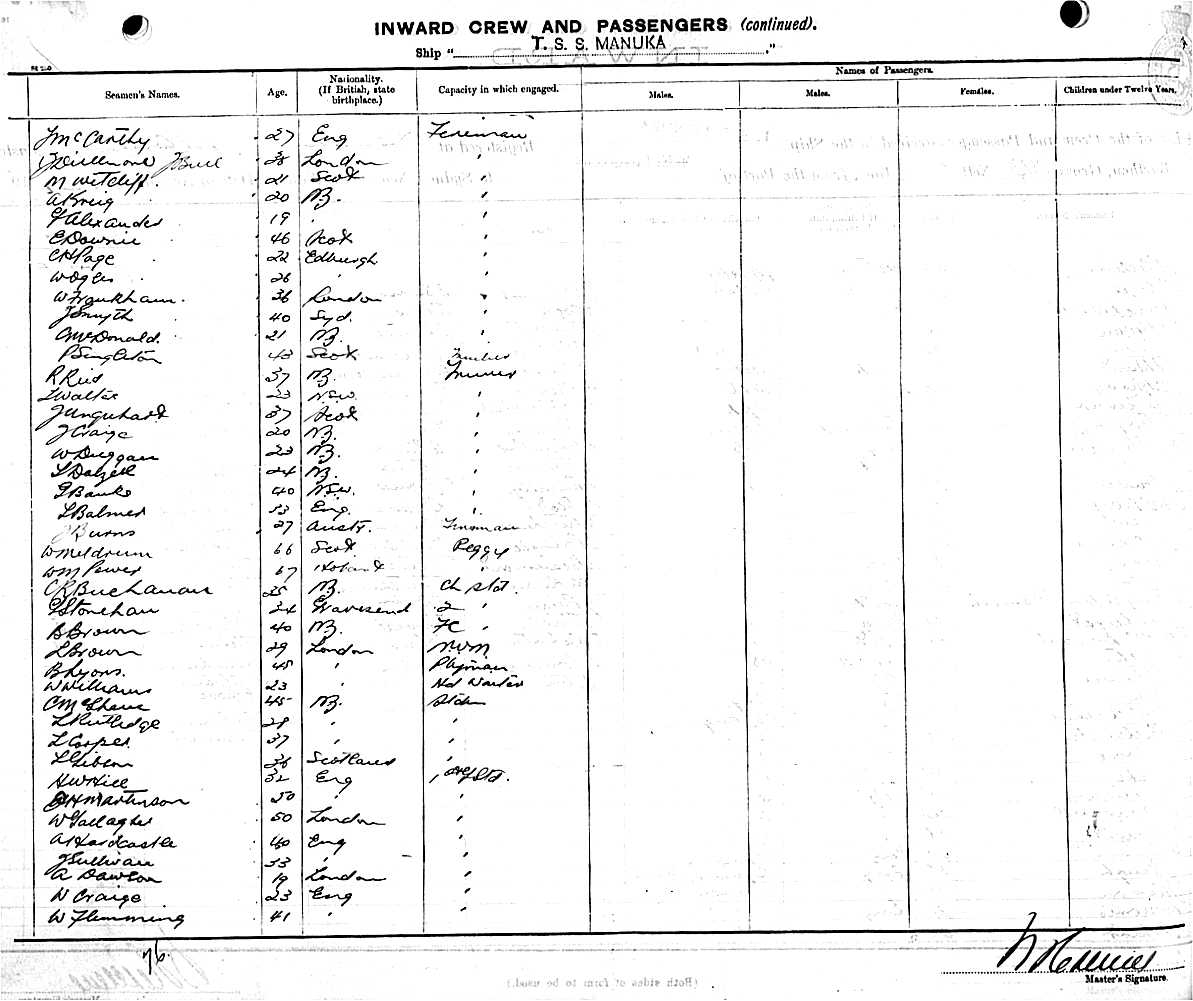 INWARD CREW AND PASSENGERS (continued).
Ship "T. S. S. MANUKA,"
Seamen's Names. Age. Nationality. (If British, state birthplace.) Capacity in which engaged. Names of Passengers.
Males. Males. Females. Children under Twelve Years.
J McCarthy 27 Eng Fireman
J Bull 28 London "
M Wetcliff. 21 Scot "
A Kreig 20 NZ. "
Alexander 19 " "
E Downie 46 Scot "
C H Page 22 Edburgh "
W Ogles 26 " "
W Frankham. 36 London "
J Smyth 40 Syd. "
C McDonald. 21 NZ. "
P Singleton 43 Scot
R Reid 37 NZ. Trimmer
Walter 23 NSW. "
J Urquhart 37 Scot "
J Craige 20 NZ. "
W Duggan 23 NZ. "
L Dalzell 24 NZ. "
Banks 40 NSW. "
L Balmer 53 Eng. "
Burns 27 Austr.
W Meldrum 66 Scot Peggy
Wm Power 67 "
C R Buchanan 35 NZ. Ch Std.
Stoneham 34 Gravesend 2 "
B Brown 40 NZ. FC "
L Brown 29 London
B Lyons. 45 " Plyman
W Williams 23 " Hd Waiter
C McShane 45 NZ. Stds
L Rutledge 28 " "
L Cooper 37 " "
L Gibson 36 Scotland "
H W Hill 32 Eng Std.
H Martinson 50 " "
W Gallagher 50 London "
A Hardcastle 40 Eng "
J Sullivan 33 " "
A Dawson 19 London "
N Craige 23 Eng "
W Flemming 41 " "
76.
Master's Signature.
(Both sides of form to be used.)